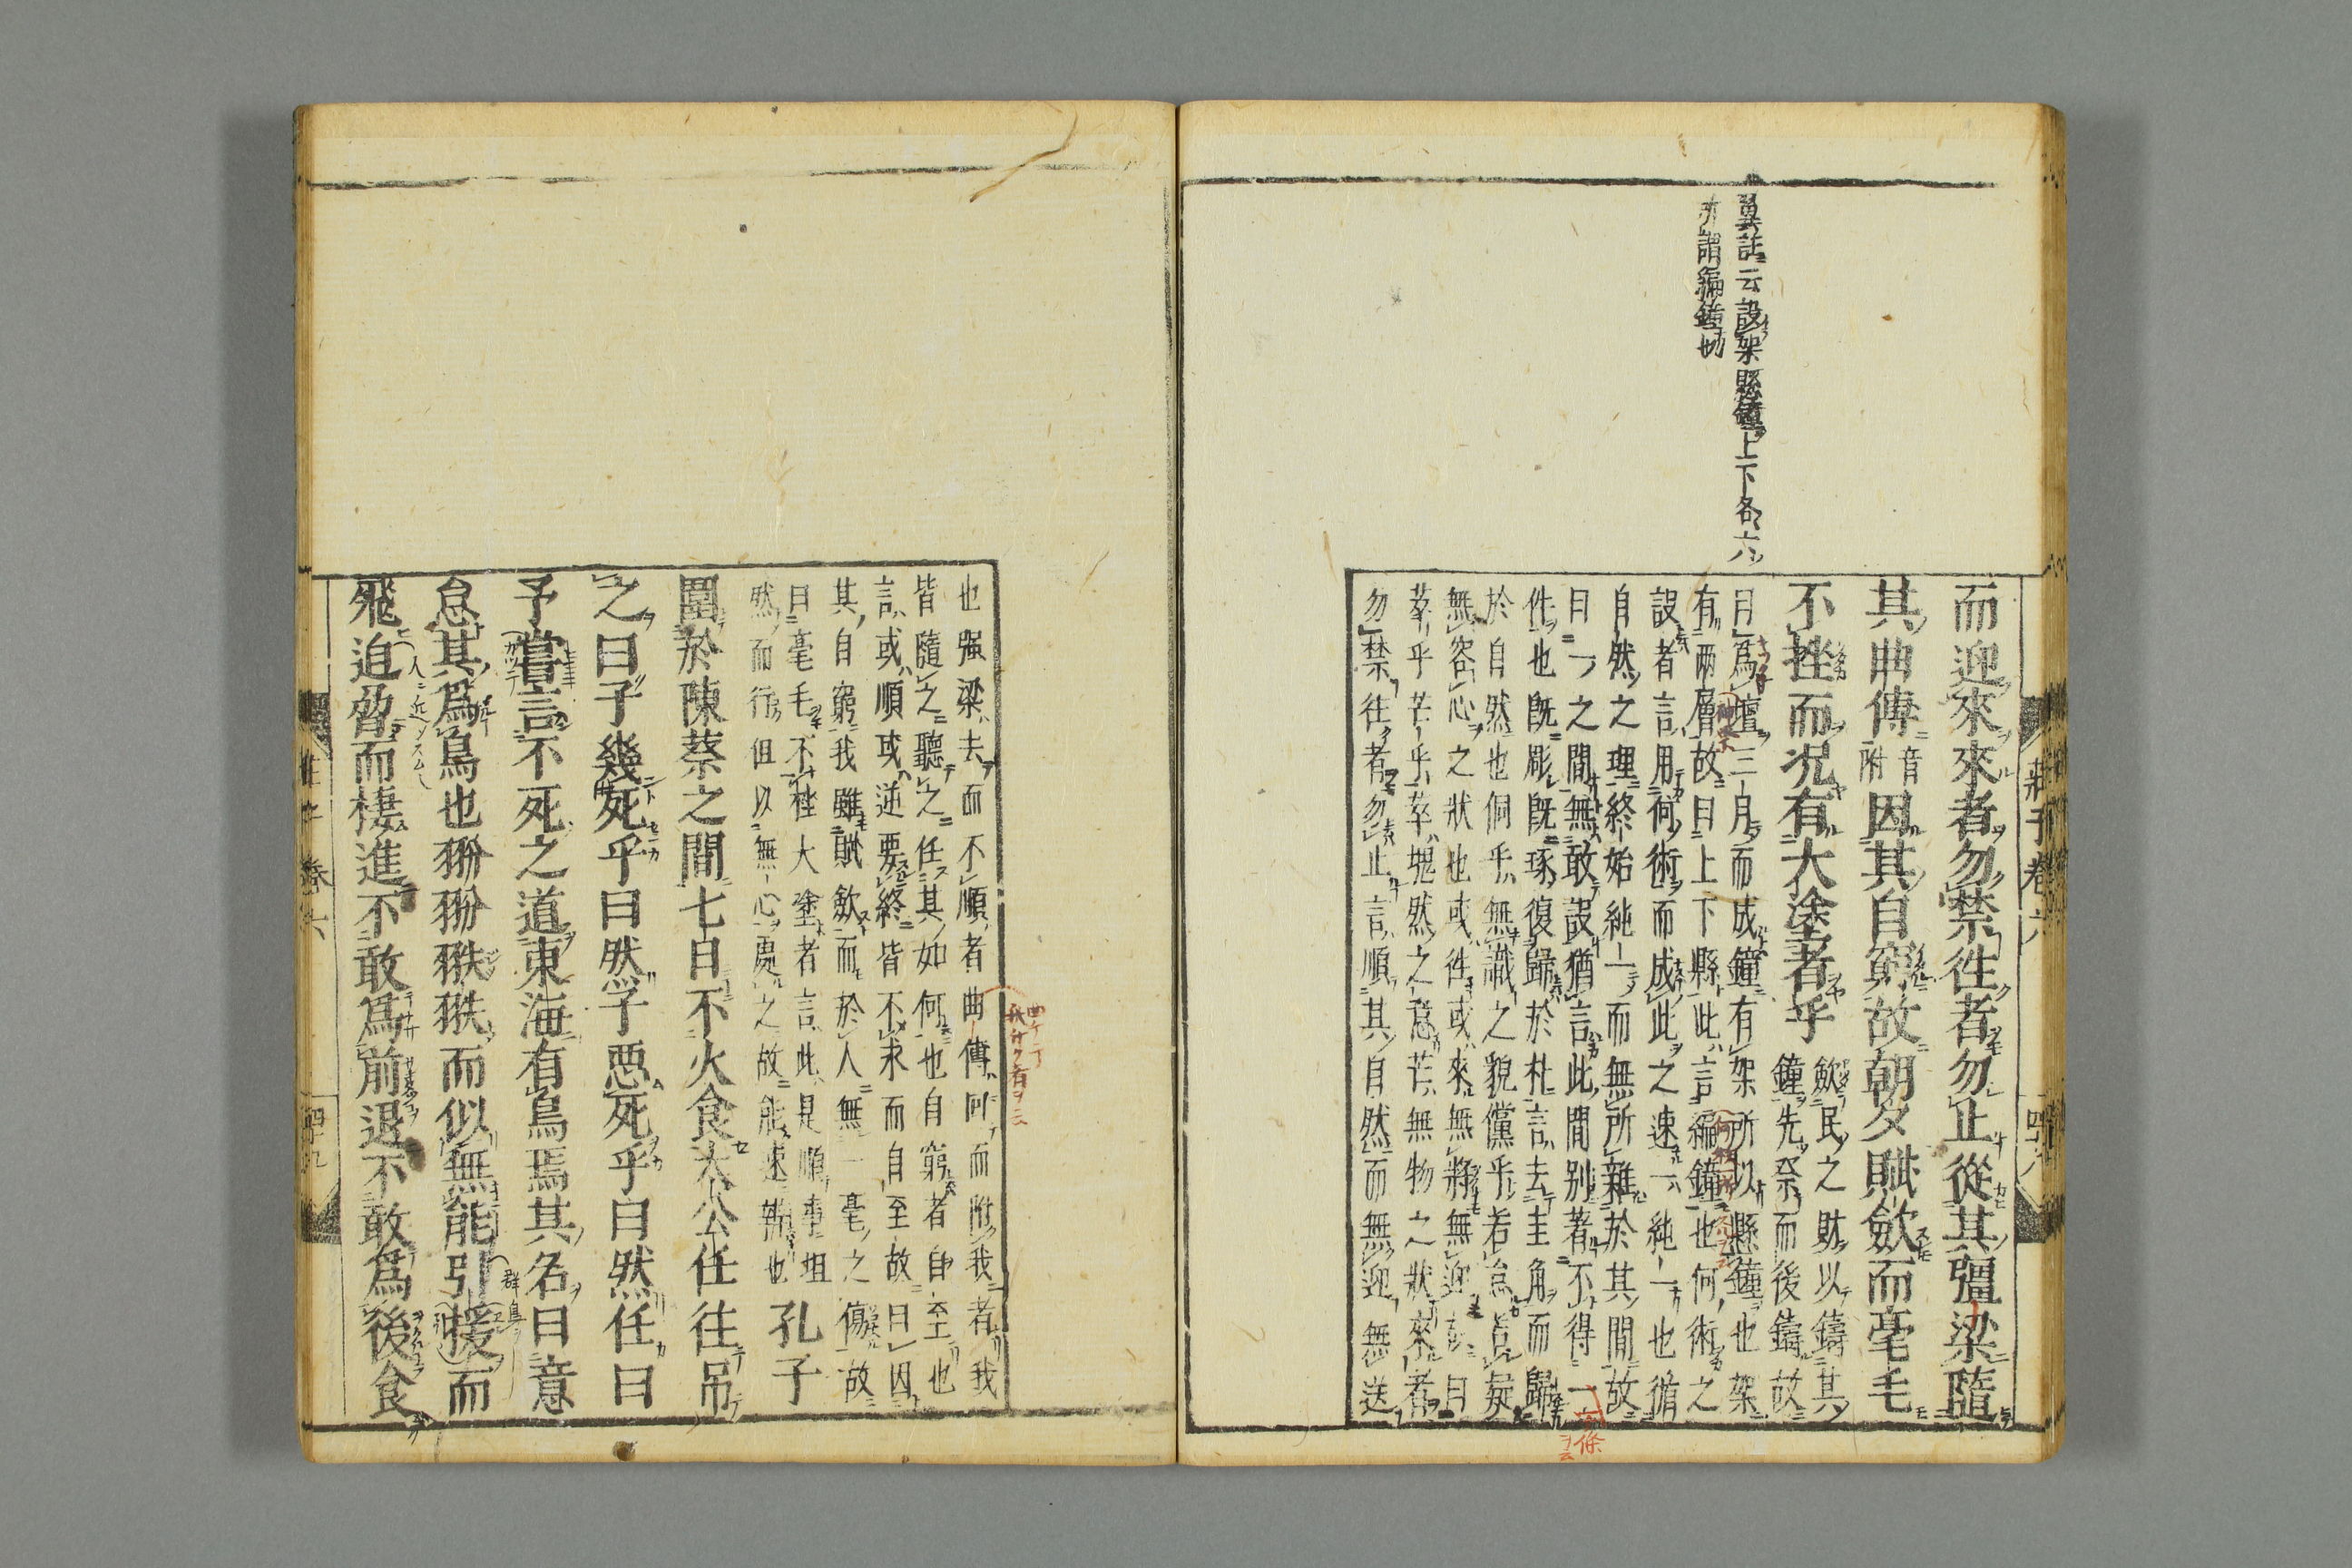 翼註云設架縣鐘上下各六
所謂編鐘也
莊子卷六
四十八
而迎來來者勿禁徃者勿止從其彊梁隨
其曲傳音附因其自窮故朝夕賦歛而毫毛
不挫而况有大塗者乎歛民之財以鑄其
鐘先祭而後鑄故
曰爲壇三月而成鐘有架所以縣鐘也架
有兩層故曰上下縣此言編鐘也何術之
設者言用何術而成此之速一純一也循
自然之理終始純一而無所雜於其間故
曰一之間無敢設猶言此間別著不得一
件也旣彫旣琢復歸於朴言去圭角而歸
於自然也侗乎無識之貌儻乎若怠若疑
無容心之狀也或徃或來無將無迎故曰
萃乎芒乎萃塊然之意芒無物之狀來者
勿禁往者勿止言順其自然而無迎無送
也强梁去而不順者曲傳何而附我者我
皆隨之聽之任其如何也自窮者自至也
言或順或逆要終皆不求而自至故曰因
其自窮我雖賦歛而於人無一毫之傷故
曰毫毛不挫大塗者言此是順事坦
然而行但以無心處之故能速辦也孔子
圍於陳蔡之間七日不火食大公任往吊
之曰子幾死乎曰然子惡死乎曰然任曰
予嘗言不死之道東海有鳥焉其名曰意
怠其爲鳥也翂翂翐翐而似無能引援而
飛迫脅而棲進不敢爲前退不敢爲後食
卷六
四十九